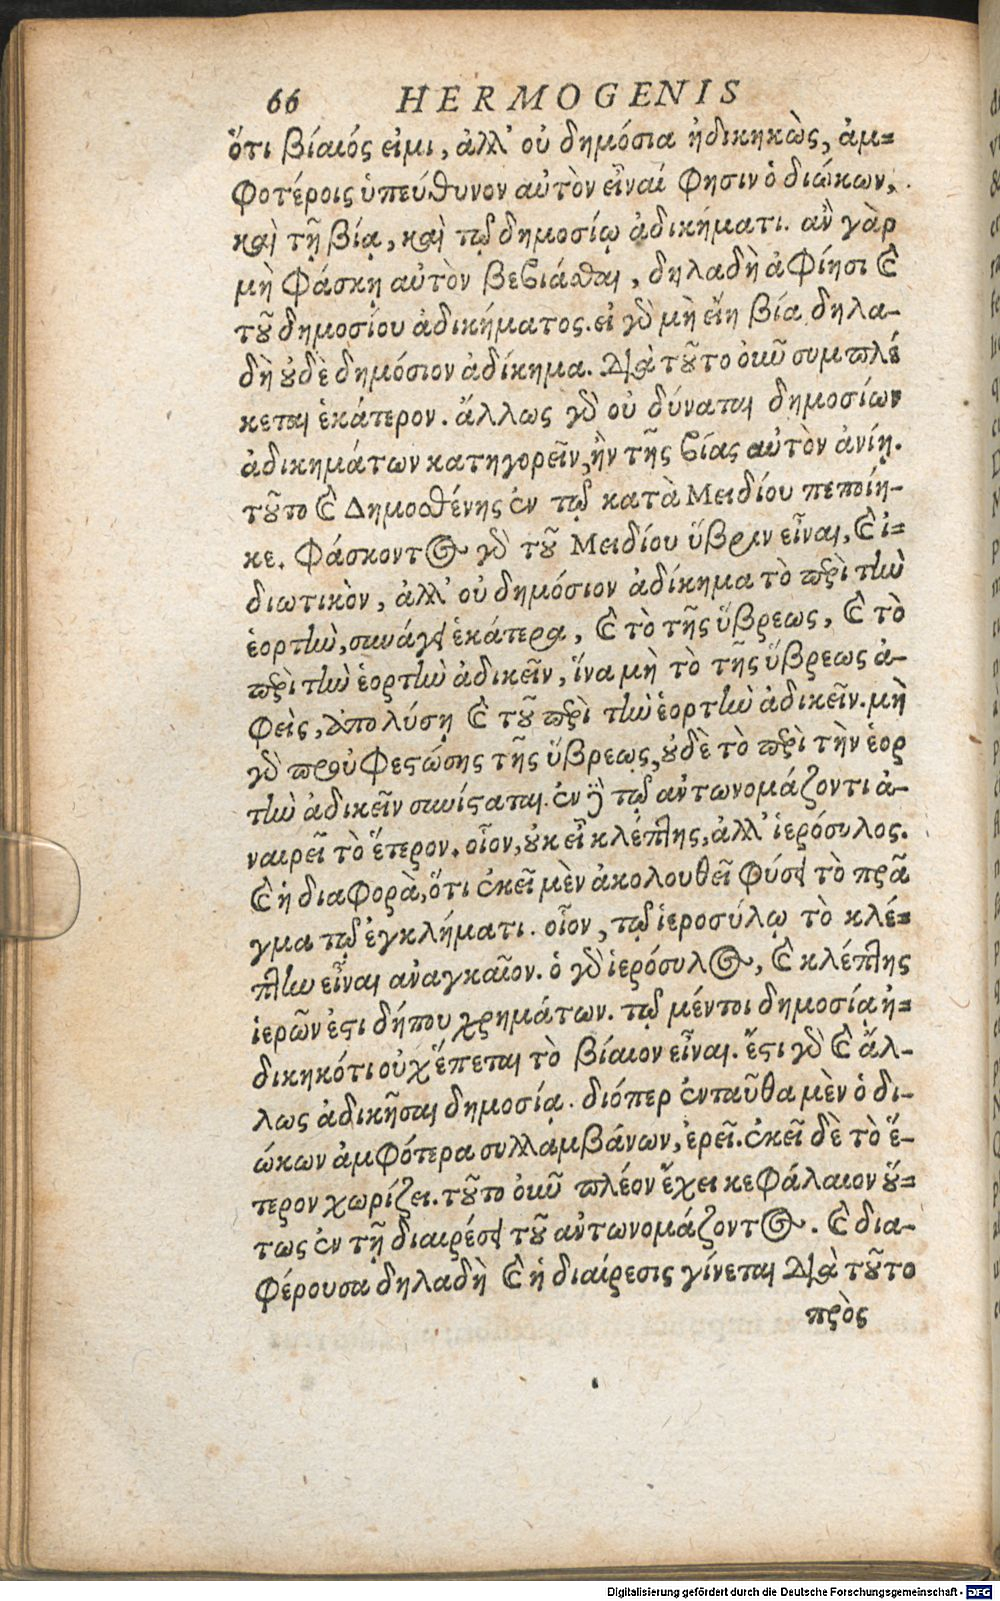 66 HERMOGENIS
ὅτι βίαιός εἰμι, ἀλλ' οὐ δημόσια ἠδικηκὼς, ἀμ=
φοτέροις ὑπεύθυνον αὐτὸν εἶναί φησιν ὁ διώκων,
καὶ τῇ βίᾳ, καὶ τῷ δημοσίῳ ἀδικήματι. ἂν γὰρ
μὴ φάσκῃ αὐτὸν βεβιάσθαι, δηλαδὴ ἀφίησι καὶ
τοῦ δημοσίου ἀδικήματος. εἰ γὰρ μὴ εἴη βία δηλα-
δὴ οὐδὲ δημόσιον ἀδίκημα. διὰ τοῦτο οὖν συμπλέ
κεται ἑκάτερον. ἄλλως γὰρ οὐ δύναται δημοσίων
ἀδικημάτων κατηγορεῖν, ἢν τῆς βίας αὐτὸν ἀνίῃ.
τοῦτο καὶ Δημοσθένης ἐν τῷ κατὰ Μειδίου πεποίη-
κε. φάσκοντος γὰρ τοῦ Μειδίου ὕβριν εἶναι, καὶ ἰ=
διωτικὸν, ἀλλ' οὐ δημόσιον ἀδίκημα τὸ περὶ τὴν
ἑορτὴν, συνάγει ἑκάτερα, καὶ τὸ τῆς ὕβρεως, καὶ τὸ
περὶ τὴν ἑορτὴν ἀδικεῖν, ἵνα μὴ τὸ τῆς ὕβρεως ἀ-
φεὶς, ἀπολύσῃ καὶ τοῦ περὶ τὴν ἑορτὴν ἀδικεῖν. μὴ
γὰρ προϋφεστώσης τῆς ὕβρεως, οὐδὲ τὸ περὶ τὴν ἑορ
τὴν ἀδικεῖν συνίσταται. ἐν δὲ τῷ ἀντωνομάζοντι ἀ-
ναιρεῖ τὸ ἕτερον. οἷον, οὐκ εἶ κλέπτης, ἀλλ' ἱερόσυλος.
καὶ ἡ διαφορὰ, ὅτι ἐκεῖ μὲν ἀκολουθεῖ φύσει τὸ πρᾶ
γμα τῷ ἐγκλήματι. οἷον, τῷ ἱεροσύλῳ τὸ κλέ=
πτην εἶναι ἀναγκαῖον. ὁ γὰρ ἱερόσυλος, καὶ κλέπτης
ἱερῶν ἐστι δήπου χρημάτων. τῷ μέντοι δημοσίᾳ ἠ=
δικηκότι οὐχ ἕπεται τὸ βίαιον εἶναι. ἔστι γὰρ καὶ ἄλ-
λως ἀδικῆσαι δημοσίᾳ. διόπερ ἐνταῦθα μὲν ὁ δι-
ώκων ἀμφότερα συλλαμβάνων, ἐρεῖ. ἐκεῖ δὲ τὸ ἕ-
τερον χωρίζει. τοῦτο οὖν πλέον ἔχει κεφάλαιον οὕ=
τως ἐν τῇ διαιρέσει τοῦ ἀντωνομάζοντος. καὶ δια-
φέρουσα δηλαδὴ καὶ ἡ διαίρεσις γίνεται διὰ τοῦτο
πρὸς
Digitalisierung gefördert durch die Deutsche Forschungsgemeinschaft - DFG